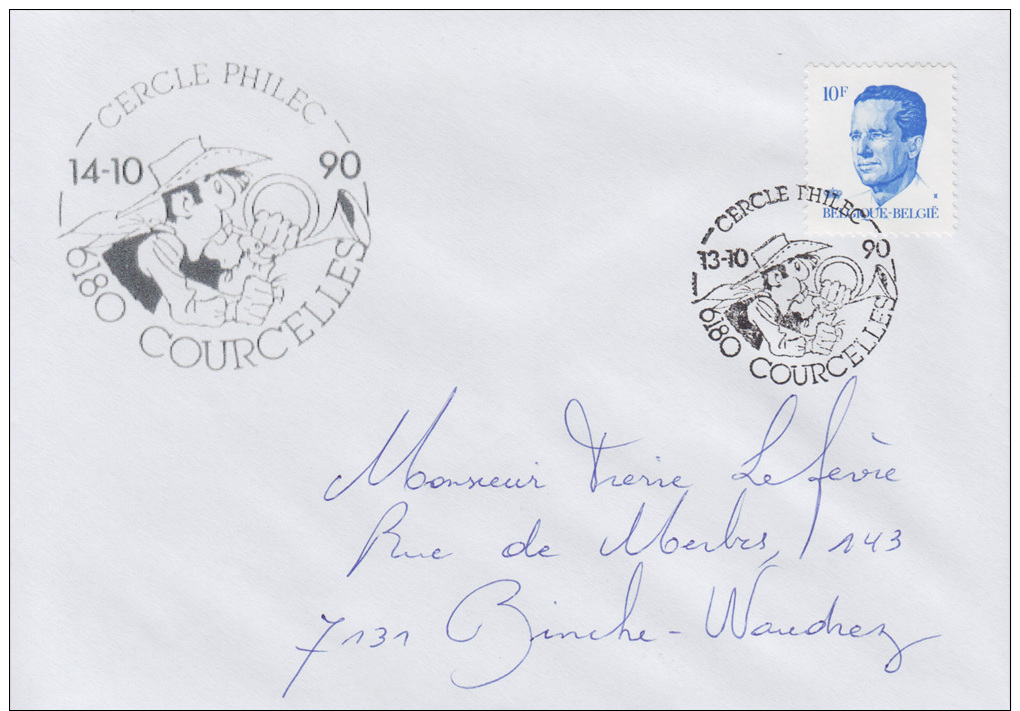 CERCLE PHILEC
14-10 90
6180 COURCELLES
10F
BELGIQUE-BELGIË
CERCLE PHILEC
13-10 90
6180 COURCELLES
Monsieur Pierre Lefèvre
Rue de Merbes, 143
7131 Binche-Waudrez